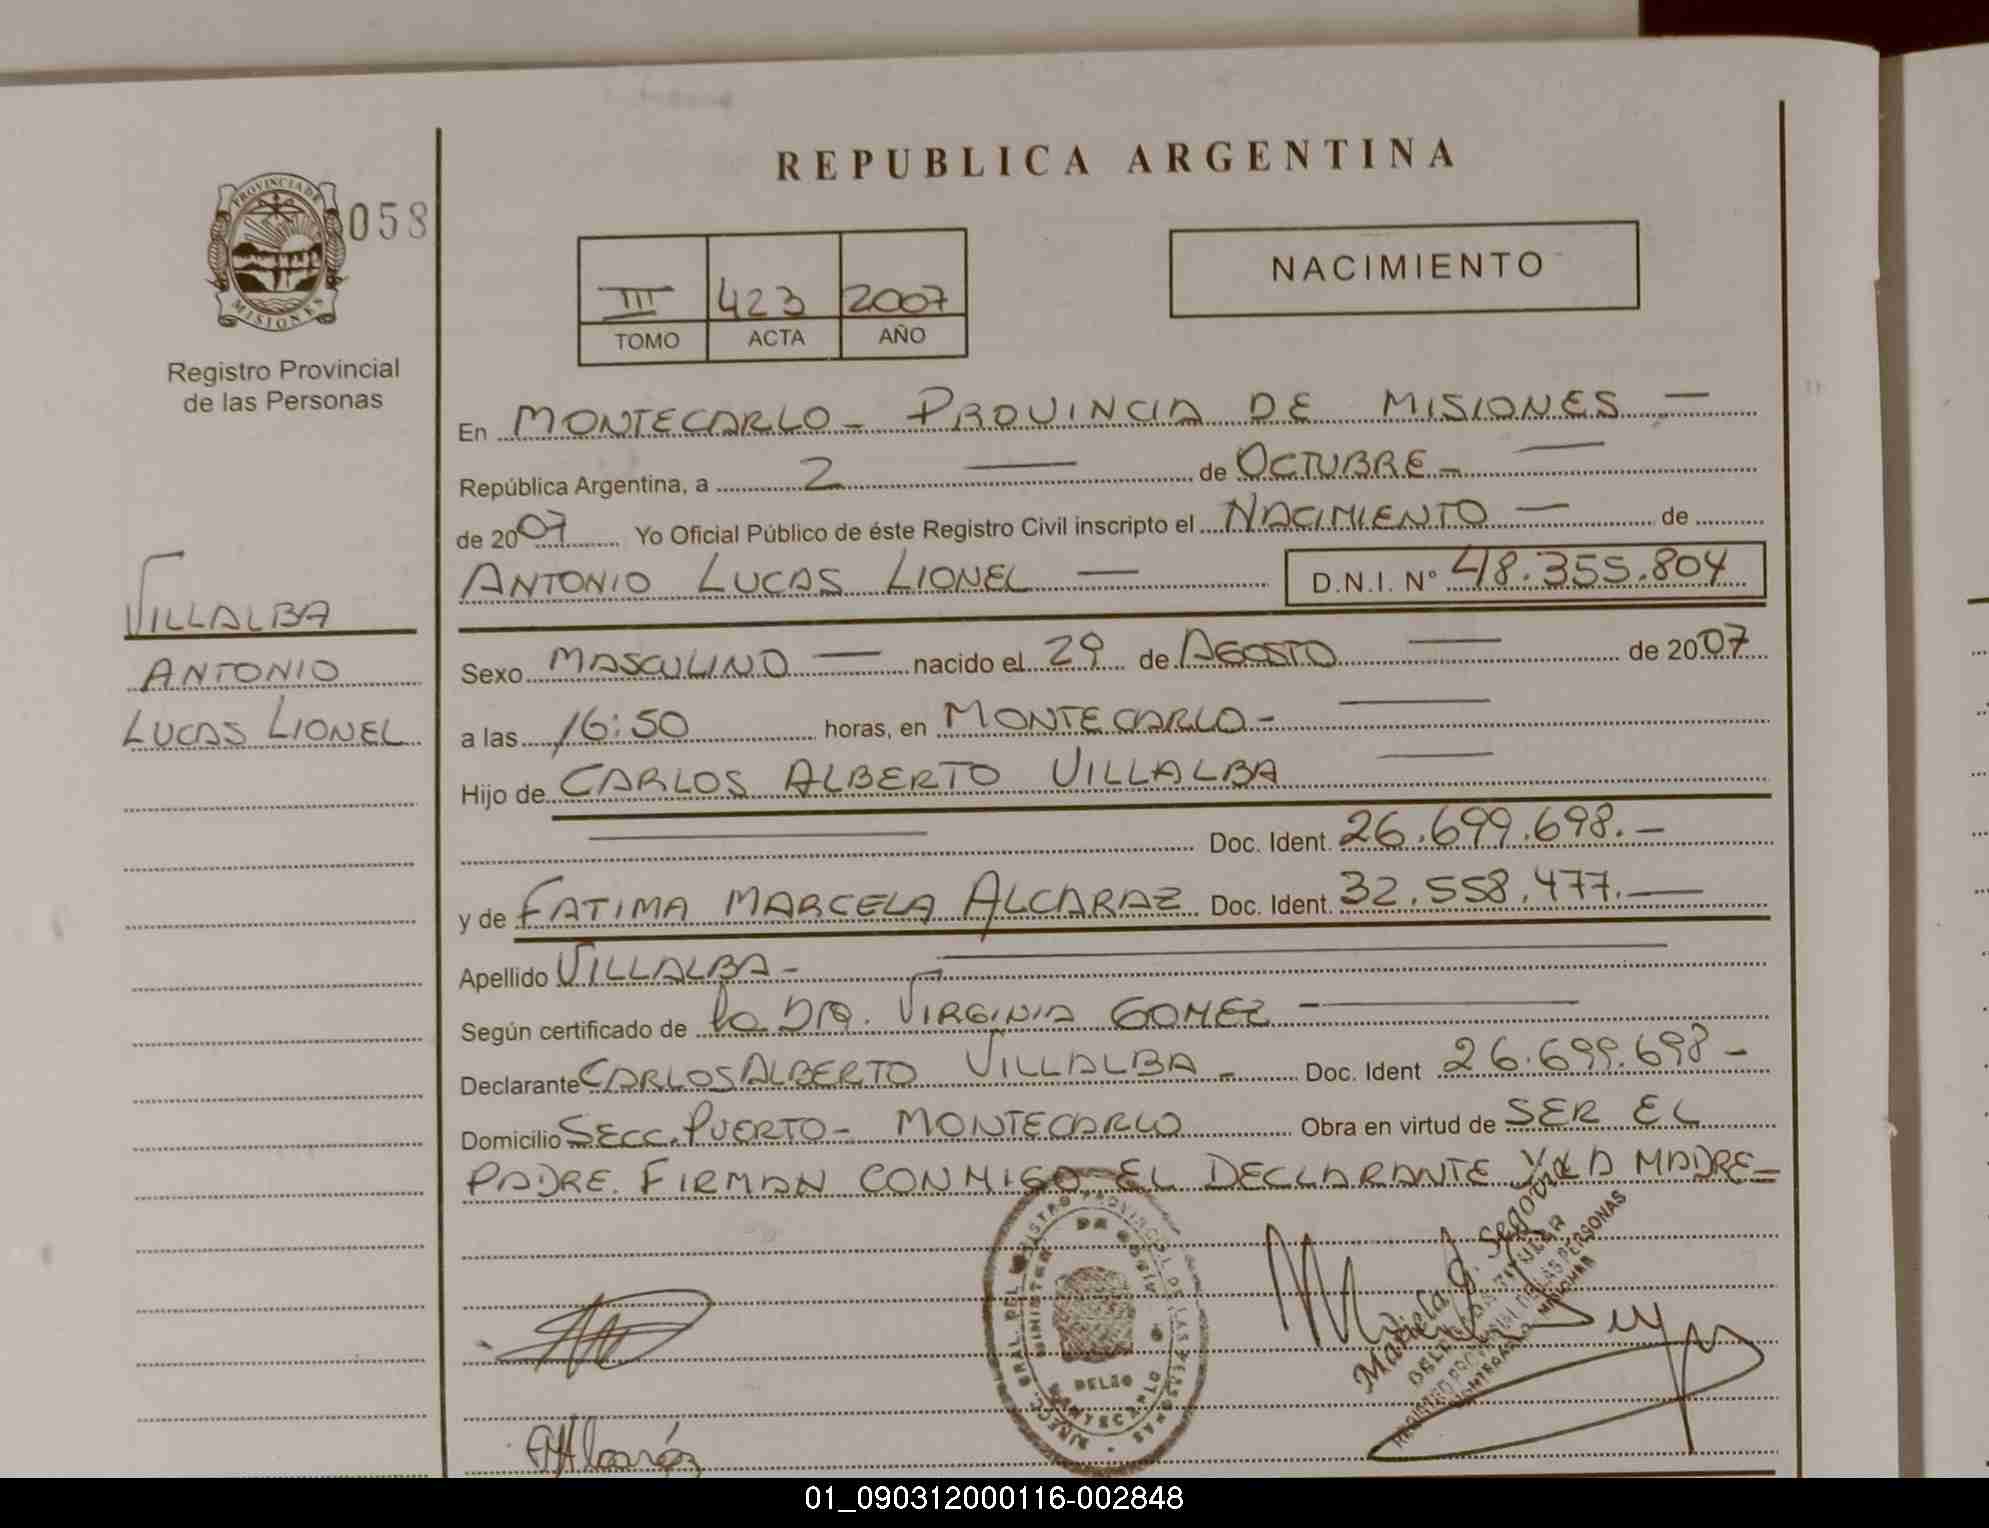 REPUBLICA ARGENTINA
PROVINCIA DE
MISIONES
058
Registro Provincial
de las Personas
III 423 2007
TOMO ACTA AÑO
NACIMIENTO
VILLALBA
ANTONIO
LUCAS LIONEL
En MONTECARLO - PROVINCIA DE MISIONES —
República Argentina, a 2 — de OCTUBRE - —
de 2007 Yo Oficial Público de éste Registro Civil inscripto el NACIMIENTO — de
ANTONIO LUCAS LIONEL — D.N.I. N° 48.355.804
Sexo MASCULINO — nacido el 29 de AGOSTO — de 2007
a las 16:50 horas, en MONTECARLO - —
Hijo de CARLOS ALBERTO VILLALBA —
— Doc. Ident. 26.699.698. —
y de FATIMA MARCELA ALCARAZ Doc. Ident. 32.558.477. —
Apellido VILLALBA - —
Según certificado de la DRA. VIRGINIA GOMEZ —
Declarante CARLOS ALBERTO VILLALBA - Doc. Ident 26.699.698 -
Domicilio SECC. PUERTO - MONTECARLO Obra en virtud de SER EL
PADRE. FIRMAN CONMIGO EL DECLARANTE Y LA MADRE =
Mariela G. Segovia
REGISTRO PROVINCIAL DE LAS PERSONAS
DELEG
MONTECARLO
01_090312000116-002848